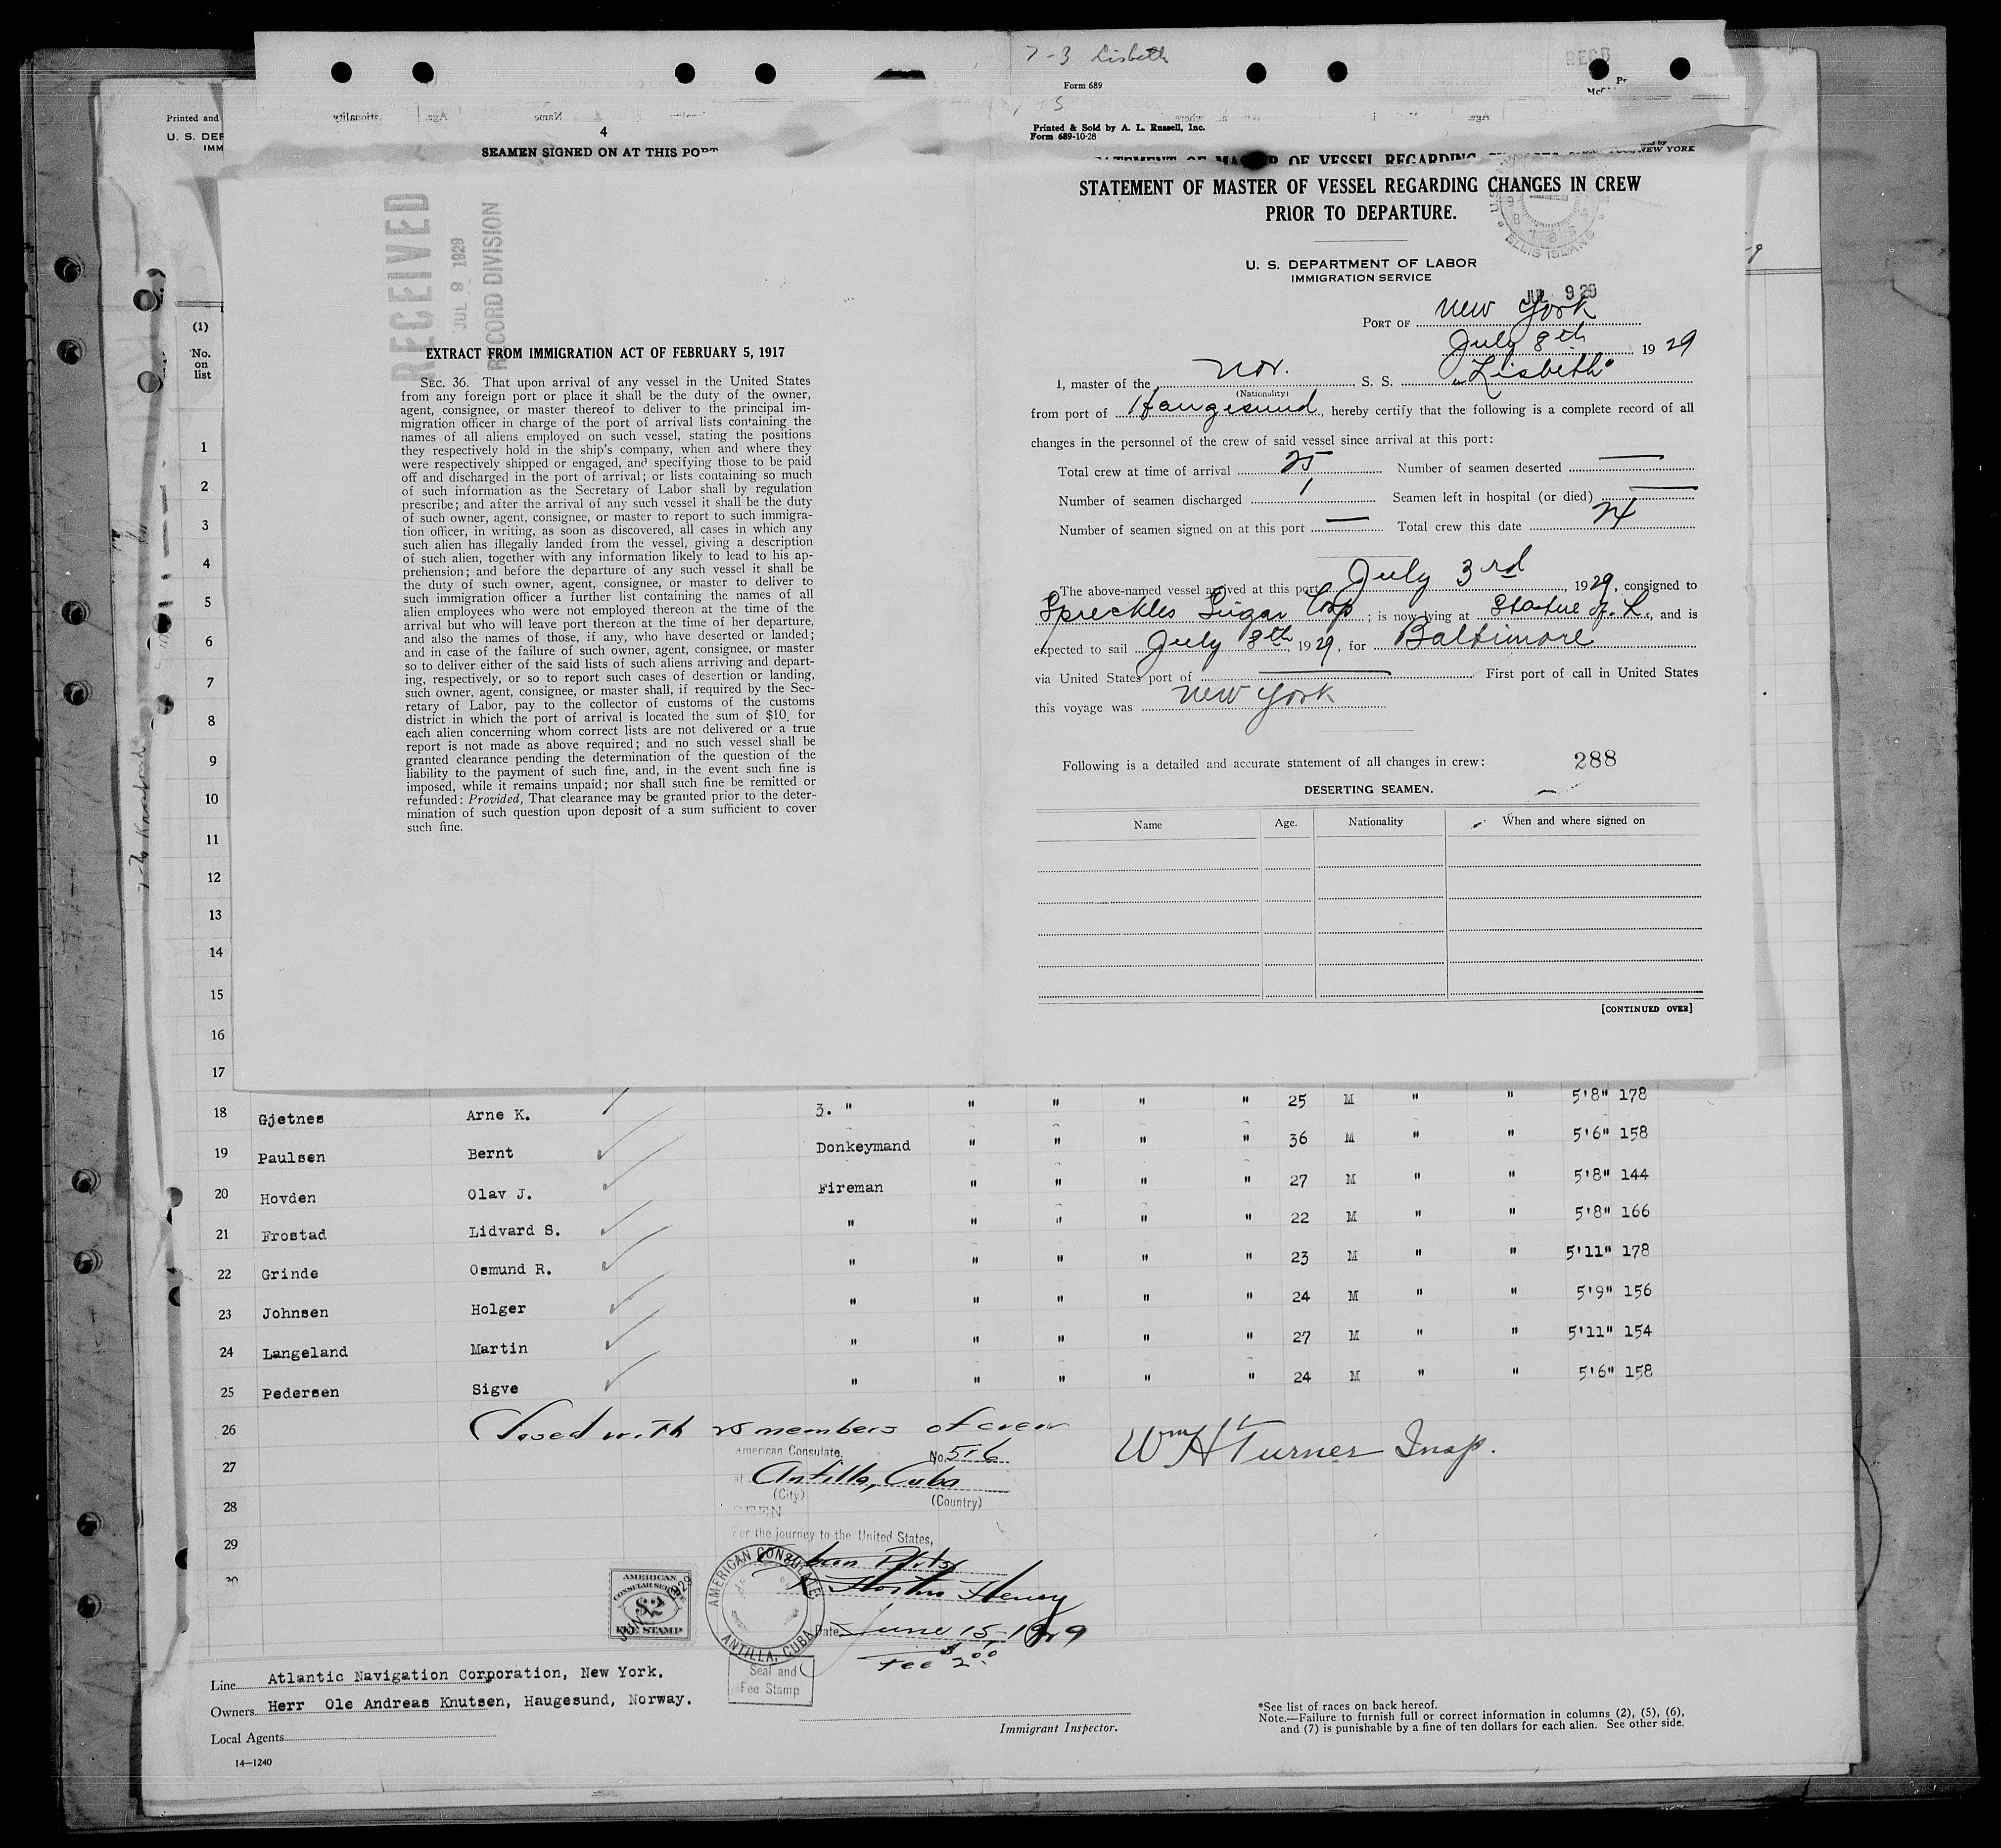 7-3 Lisbeth
RECD
Form 689
Printed and
U. S. DEP
IMM
Nationality
Age.
Name
4
SEAMEN SIGNED ON AT THIS PORT
Printed & Sold by A. L. Russell, Inc.
Form 689-10-28
NEW YORK
OF VESSEL REGARDING
STATEMENT OF MASTER OF VESSEL REGARDING CHANGES IN CREW
PRIOR TO DEPARTURE.
ELLIS ISLAND
U. S. DEPARTMENT OF LABOR
IMMIGRATION SERVICE
JUL 9 29
PORT OF New York
July 8th 1929
I, master of the Nor. S. S. "Lisbeth"
(Nationality)
from port of Haugesund, hereby certify that the following is a complete record of all
changes in the personnel of the crew of said vessel since arrival at this port:
Total crew at time of arrival 25 Number of seamen deserted —
Number of seamen discharged 1 Seamen left in hospital (or died) —
Number of seamen signed on at this port — Total crew this date 24
The above-named vessel arrived at this port July 3rd, 1929, consigned to
Spreckles Sugar Corp; is now lying at Statue of L., and is
expected to sail July 8th, 1929, for Baltimore
via United States port of —. First port of call in United States
this voyage was New York
Following is a detailed and accurate statement of all changes in crew: 288
DESERTING SEAMEN.
Name Age. Nationality When and where signed on
[CONTINUED OVER]
RECEIVED
JUL 9 1929
RECORD DIVISION
EXTRACT FROM IMMIGRATION ACT OF FEBRUARY 5, 1917
SEC. 36. That upon arrival of any vessel in the United States
from any foreign port or place it shall be the duty of the owner,
agent, consignee, or master thereof to deliver to the principal im-
migration officer in charge of the port of arrival lists containing the
names of all aliens employed on such vessel, stating the positions
they respectively hold in the ship's company, when and where they
were respectively shipped or engaged, and specifying those to be paid
off and discharged in the port of arrival; or lists containing so much
of such information as the Secretary of Labor shall by regulation
prescribe; and after the arrival of any such vessel it shall be the duty
of such owner, agent, consignee, or master to report to such immigra-
tion officer, in writing, as soon as discovered, all cases in which any
such alien has illegally landed from the vessel, giving a description
of such alien, together with any information likely to lead to his ap-
prehension; and before the departure of any such vessel it shall be
the duty of such owner, agent, consignee, or master to deliver to
such immigration officer a further list containing the names of all
alien employees who were not employed thereon at the time of the
arrival but who will leave port thereon at the time of her departure,
and also the names of those, if any, who have deserted or landed;
and in case of the failure of such owner, agent, consignee, or master
so to deliver either of the said lists of such aliens arriving and depart-
ing, respectively, or so to report such cases of desertion or landing,
such owner, agent, consignee, or master shall, if required by the Sec-
retary of Labor, pay to the collector of customs of the customs
district in which the port of arrival is located the sum of $10. for
each alien concerning whom correct lists are not delivered or a true
report is not made as above required; and no such vessel shall be
granted clearance pending the determination of the question of the
liability to the payment of such fine, and, in the event such fine is
imposed, while it remains unpaid; nor shall such fine be remitted or
refunded: Provided, That clearance may be granted prior to the deter-
mination of such question upon deposit of a sum sufficient to cover
such fine.
(1)
No.
on
list
1
2
3
4
5
6
7
8
9
10
11
12
13
14
15
16
17
18 Gjetnes Arne K. 3. " " " " " 25 M " " 5'8" 178
19 Paulsen Bernt Donkeymand " " " " 36 M " " 5'6" 158
20 Hovden Olav J. Fireman " " " " 27 M " " 5'8" 144
21 Frostad Lidvard S. " " " " " 22 M " " 5'8" 166
22 Grinde Osmund R. " " " " " 23 M " " 5'11" 178
23 Johnsen Holger " " " " " 24 M " " 5'9" 156
24 Langeland Martin " " " " " 27 M " " 5'11" 154
25 Pedersen Sigve " " " " " 24 M " " 5'6" 158
26 Closed with 25 members of crew
Wm H Turner Insp.
American Consulate, No. 516
27
at Antilla, Cuba
(City) (Country)
28
SEEN
For the journey to the United States,
29
30
Horton Henry
Date June 15-1929
Fee $2.00
AMERICAN CONSULAR SERVICE
$2
FEE STAMP
AMERICAN CONSULATE
ANTILLA, CUBA
Seal and
Fee Stamp
Line Atlantic Navigation Corporation, New York.
Owners Herr Ole Andreas Knutsen, Haugesund, Norway.
Local Agents
Immigrant Inspector.
*See list of races on back hereof.
Note.—Failure to furnish full or correct information in columns (2), (5), (6),
and (7) is punishable by a fine of ten dollars for each alien. See other side.
14—1240